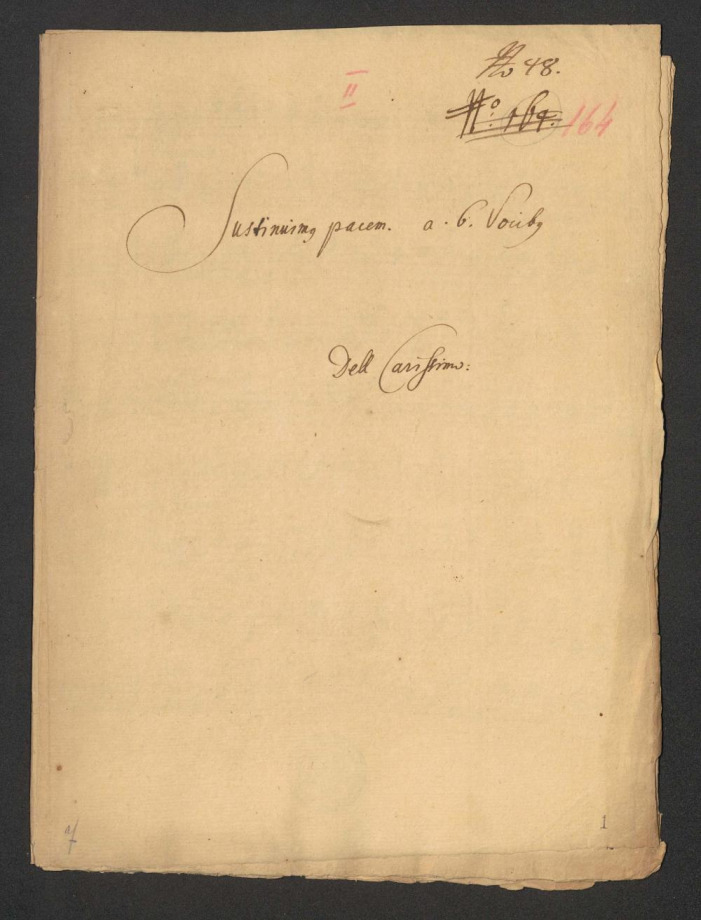 No 48.
II
No: 164. 164
Sustinuimꝰ pacem. a. 6. Vocibꝰ
Dell Carissimo:
1